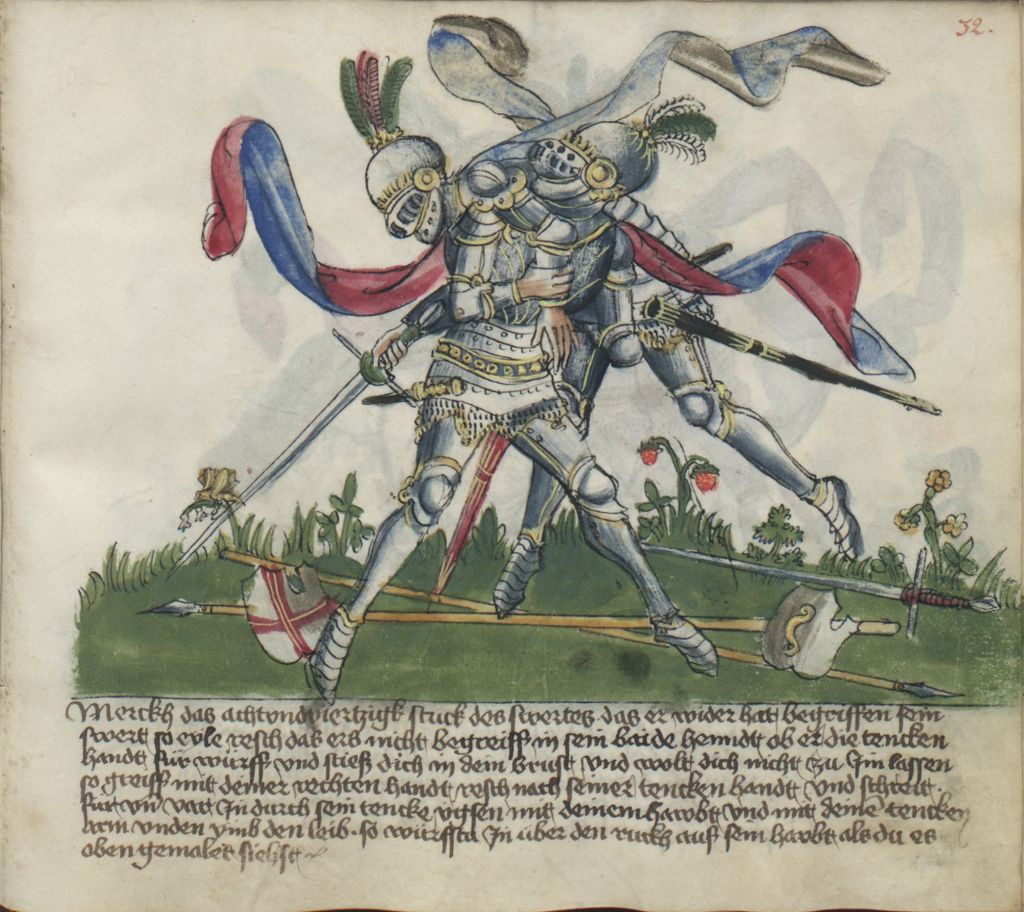 32.
Merckh das achtundviertzigk stuck des swertes · das er wider hat begriffen sein
swert so eyle resch das ers nicht begreiff in sein baide henndt ob er die tencken
handt für würff und stieß dich in dein brust und wolt dich nicht zu Im lassen
so greiff mit deiner rechten handt resch nach seiner tencken handt und schreit
für un var In durch sein tencke ügsen mit deinem hawbt und mit deine tencken
arm unden umb den leib · so würffstu In über den ruckh auf sein hawbt als du es
oben gemalet siehst